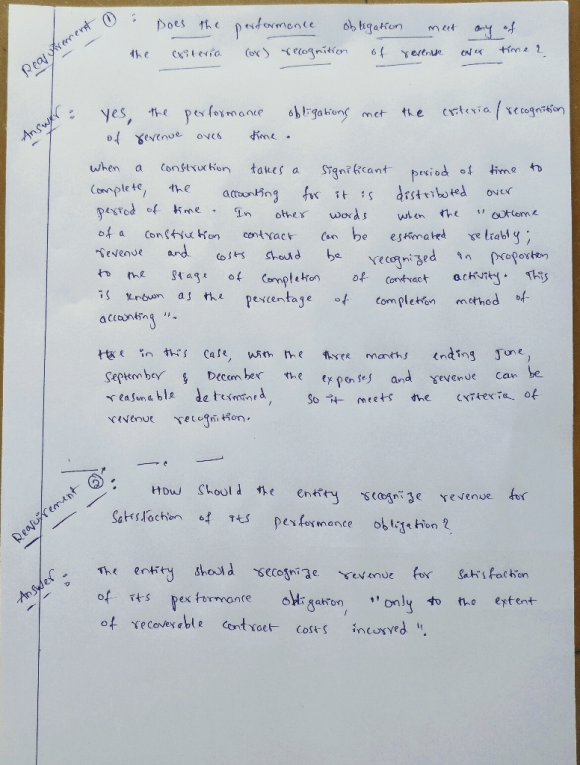 Requirement ① : Does the performance obligation meet any of
the criteria (or) recognition of revenue over time?
Answer : Yes, the performance obligations met the criteria/recognition
of revenue over time.
When a construction takes a significant period of time to
complete, the accounting for it is distributed over
period of time. In other words when the "outcome
of a construction contract can be estimated reliably;
revenue and costs should be recognized in proportion
to the stage of completion of contract activity. This
is known as the percentage of completion method of
accounting".
Here in this case, with the three months ending June,
September & December the expenses and revenue can be
reasonable determined, so it meets the criteria of
revenue recognition.
Requirement ② : How should the entity recognize revenue for
Satisfaction of its performance obligation?
Answer : The entity should recognize revenue for satisfaction
of its performance obligation, "only to the extent
of recoverable contract costs incurred".